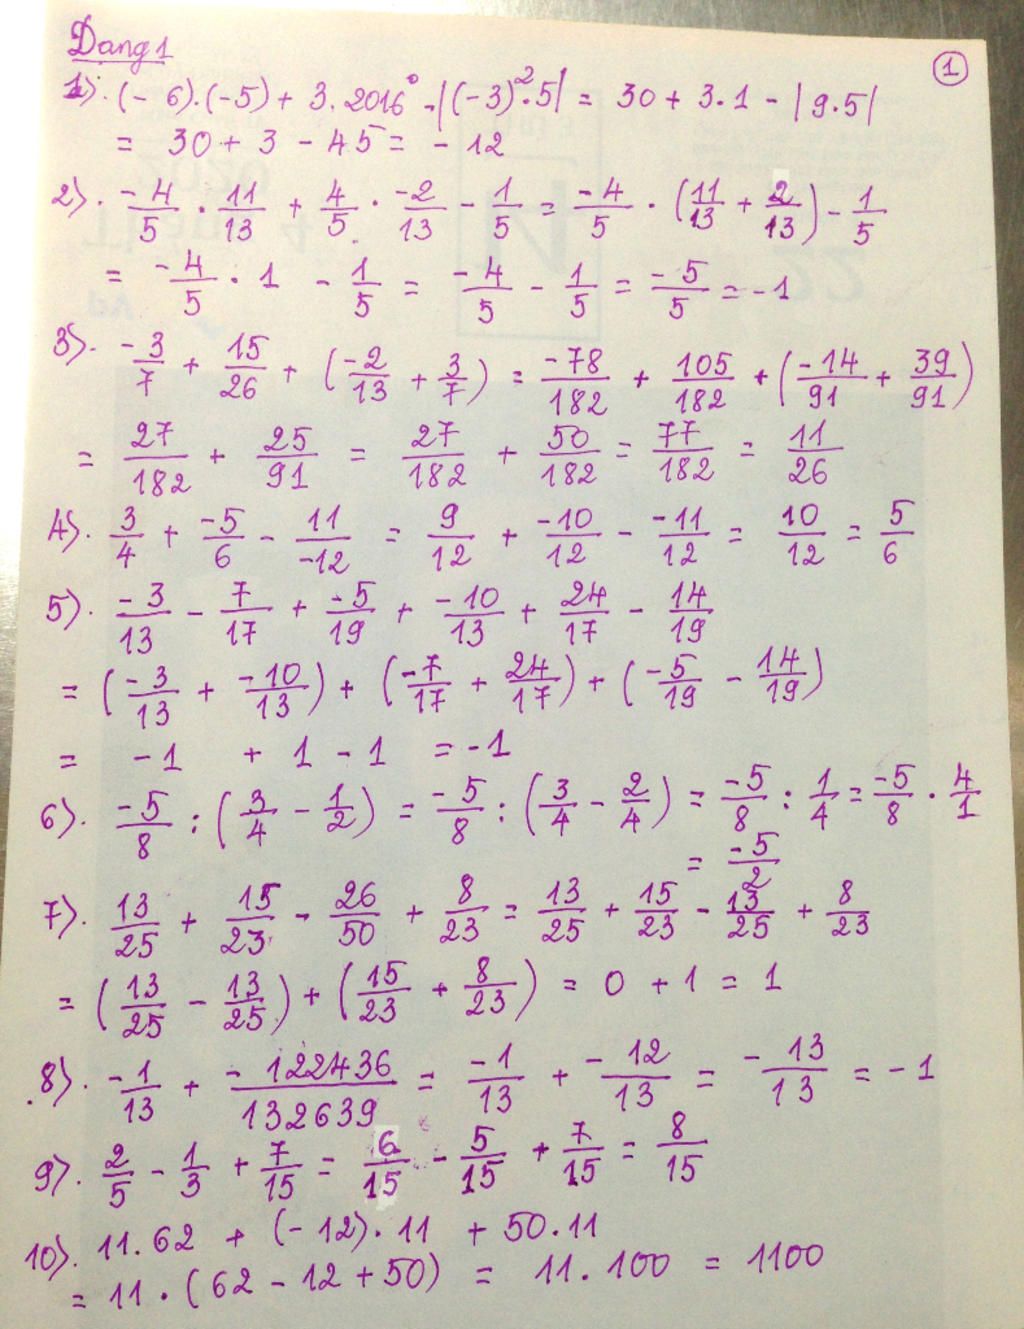 Dạng 1
①
1). (-6).(-5) + 3.2016⁰ - |(-3)².5| = 30 + 3.1 - |9.5|
= 30 + 3 - 45 = -12
2). -4/5 . 11/13 + 4/5 . -2/13 - 1/5 = -4/5 . (11/13 + 2/13) - 1/5
= -4/5 . 1 - 1/5 = -4/5 - 1/5 = -5/5 = -1
3). -3/7 + 15/26 + (-2/13 + 3/7) = -78/182 + 105/182 + (-14/91 + 39/91)
= 27/182 + 25/91 = 27/182 + 50/182 = 77/182 = 11/26
4). 3/4 + -5/6 - 11/-12 = 9/12 + -10/12 - -11/12 = 10/12 = 5/6
5). -3/13 - 7/17 + -5/19 + -10/13 + 24/17 - 14/19
= (-3/13 + -10/13) + (-7/17 + 24/17) + (-5/19 - 14/19)
= -1 + 1 - 1 = -1
6). -5/8 : (3/4 - 1/2) = -5/8 : (3/4 - 2/4) = -5/8 : 1/4 = -5/8 . 4/1
= -5/2
7). 13/25 + 15/23 - 26/50 + 8/23 = 13/25 + 15/23 - 13/25 + 8/23
= (13/25 - 13/25) + (15/23 + 8/23) = 0 + 1 = 1
8). -1/13 + -122436/132639 = -1/13 + -12/13 = -13/13 = -1
9). 2/5 - 1/3 + 7/15 = 6/15 - 5/15 + 7/15 = 8/15
10). 11.62 + (-12).11 + 50.11
= 11.(62 - 12 + 50) = 11.100 = 1100